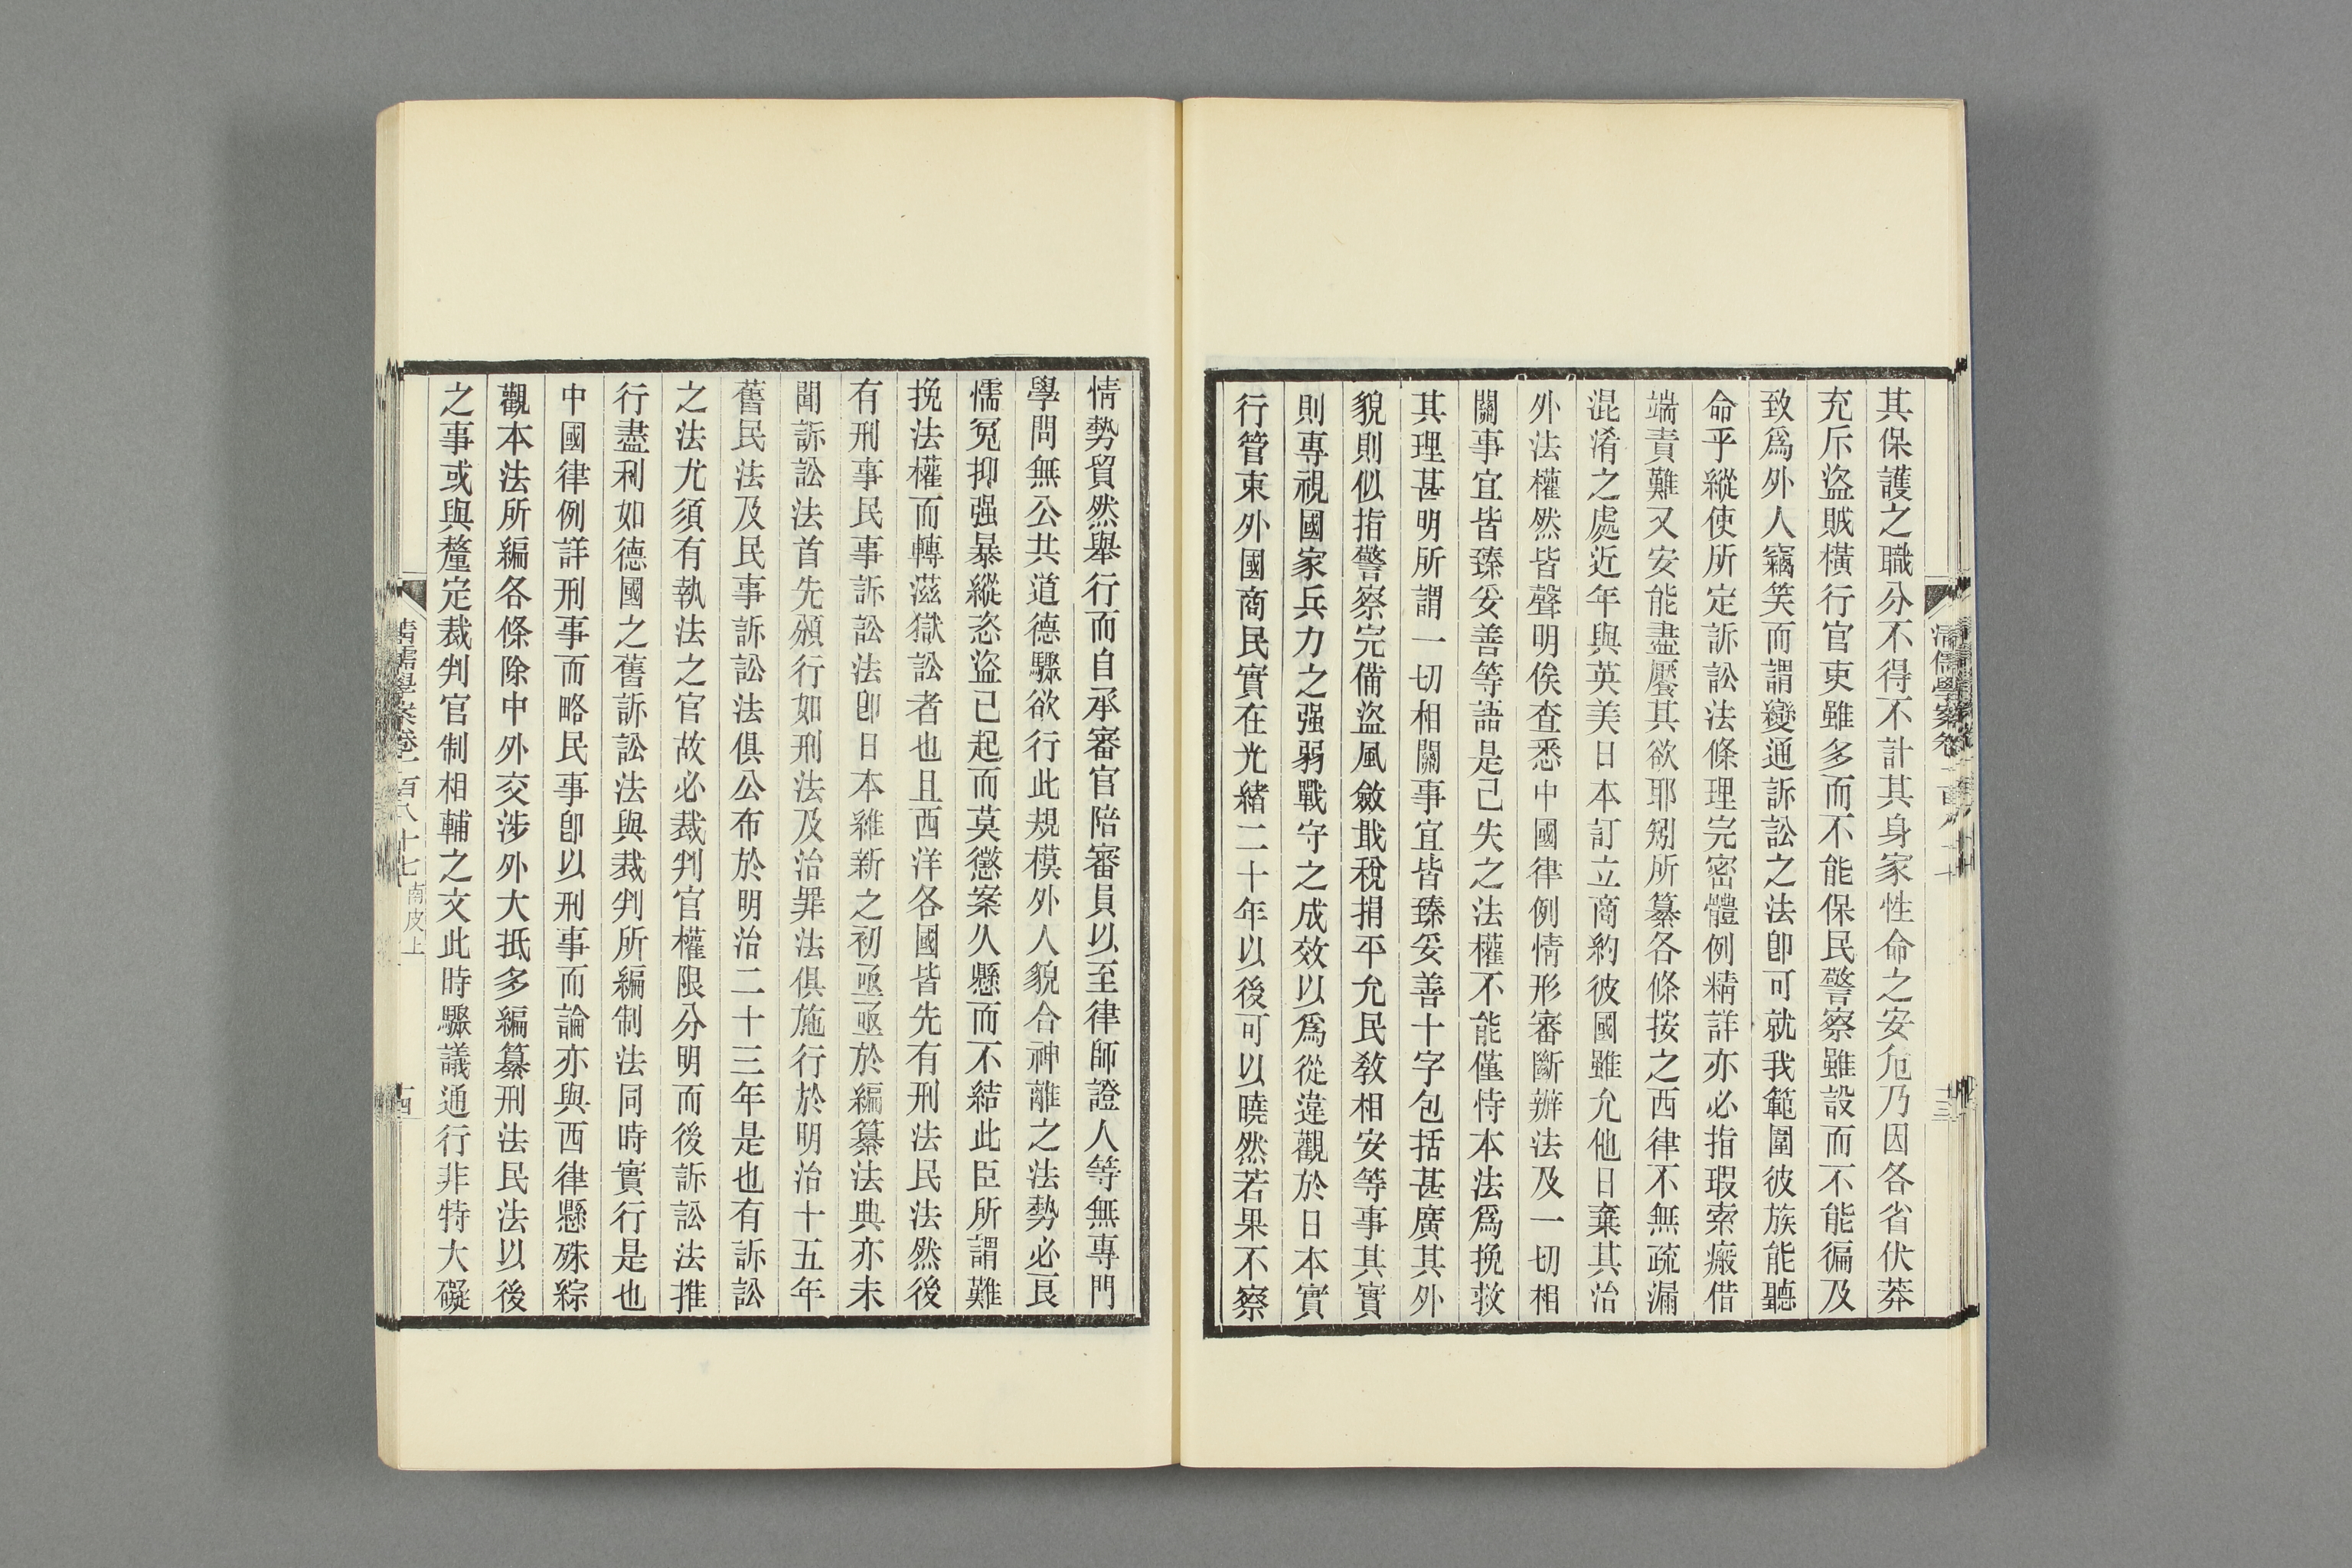 其保護之職分不得不計其身家性命之安危乃因各省伏莽
充斥盜賊橫行官吏雖多而不能保民警察雖設而不能徧及
致爲外人竊笑而謂變通訴訟之法卽可就我範圍彼族能聽
命乎縱使所定訴訟法條理完密體例精詳亦必指瑕索瘢借
端責難又安能盡饜其欲耶矧所纂各條按之西律不無疏漏
混淆之處近年與英美日本訂立商約彼國雖允他日棄其治
外法權然皆聲明俟查悉中國律例情形審斷辦法及一切相
關事宜皆臻妥善等語是已失之法權不能僅恃本法爲挽救
其理甚明所謂一切相關事宜皆臻妥善十字包括甚廣其外
貌則似指警察完備盜風斂戢稅捐平允民敎相安等事其實
則專視國家兵力之强弱戰守之成效以爲從違觀於日本實
行管束外國商民實在光緒二十年以後可以曉然若果不察
情勢貿然舉行而自承審官陪審員以至律師證人等無專門
學問無公共道德驟欲行此規模外人貌合神離之法勢必良
懦冤抑强暴縱恣盜已起而莫懲案久懸而不結此臣所謂難
挽法權而轉滋獄訟者也且西洋各國皆先有刑法民法然後
有刑事民事訴訟法卽日本維新之初亟亟於編纂法典亦未
聞訴訟法首先頒行如刑法及治罪法俱施行於明治十五年
舊民法及民事訴訟法俱公布於明治二十三年是也有訴訟
之法尤須有執法之官故必裁判官權限分明而後訴訟法推
行盡利如德國之舊訴訟法與裁判所編制法同時實行是也
中國律例詳刑事而略民事卽以刑事而論亦與西律懸殊綜
觀本法所編各條除中外交涉外大抵多編纂刑法民法以後
之事或與釐定裁判官制相輔之文此時驟議通行非特大礙
清儒學案卷一百八十七 南皮上
十四